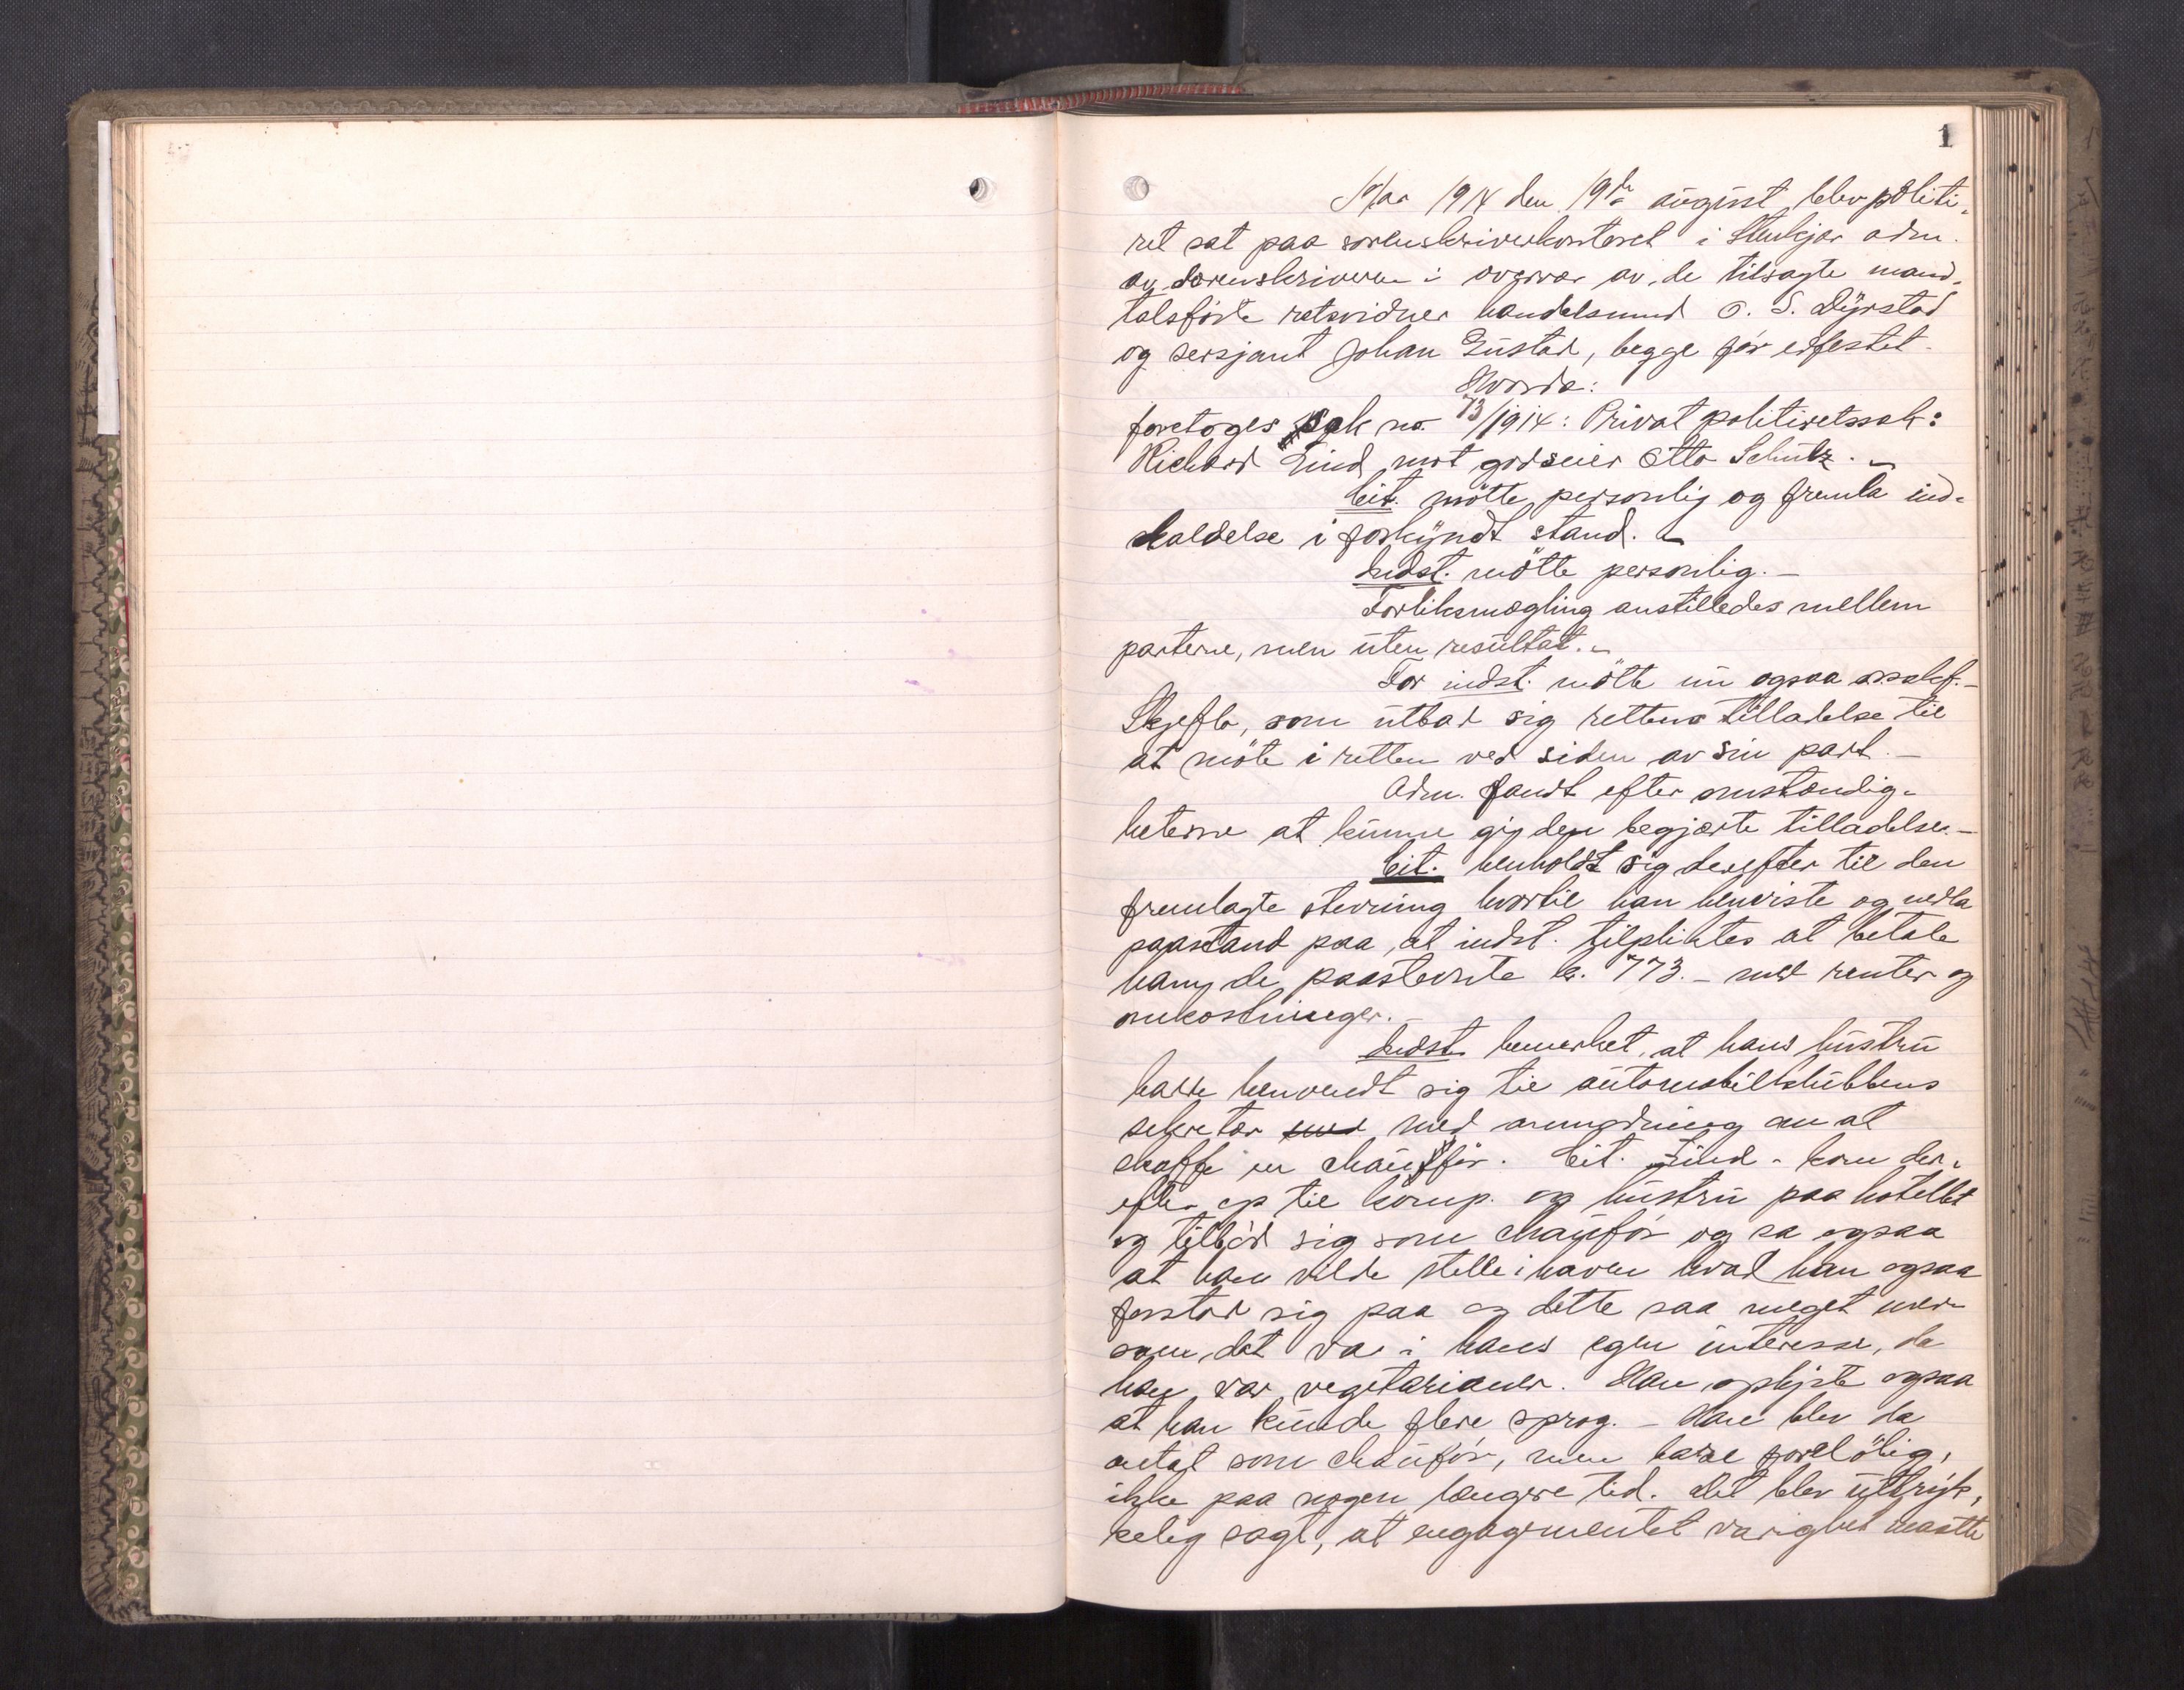 1
Aar 1914 den 19de august blev politi-
ret sat paa sorenskriverkontoret i Stenkjær adm.
av sorenskriveren i overvær av de tilsagte mand-
talsførte retsvidner handelsmand O. S. Dyrstad
og sersjant Johan Gustad, begge før edfestet.
Hvorda:
foretoges sak no. 73/1914: Privat politiretssak:
Richard Lind mot godseier Otto Schulz.
Cit. møtte personlig og fremla ind-
kaldelse i forkyndt stand.
Indst. møtte personlig. —
Forliksmægling anstilledes mellem
parterne, men uten resultat. —
For indst. møtte nu ogsaa o.r.sakf.
Skjeflo, som utbad sig rettens tilladelse til
at møte i retten ved siden av sin part. —
Adm. fandt efter omstændig-
heterne at kunne gi den begjærte tilladelse. —
Cit. henholdt sig derefter til den
fremlagte stevning hvortil han henviste og nedla
paastand paa, at indst. tilpliktes at betale
ham de paastevnte kr. 773. — med renter og
omkostninger. —
Indst. bemerket, at hans hustru
hadde henvendt sig til automobilklubbens
sekretær med med anmodning om at
skaffe en chauffør. Cit. Lind - kom der-
efter op til komp. og hustru paa hotellet
og tilbød sig som chauffør og sa ogsaa
at han vilde stelle i haven hvad han ogsaa
forstod sig paa og dette saa meget mere
som det var i hans egen interesse, da
han var vegetarianer. Han oplyste ogsaa
at han kunde flere sprog. — Han blev da
antat som chauffør, men bare foreløbig,
ikke paa nogen længere tid. Det blev uttryk-
kelig sagt, at engagementet varighet maatte